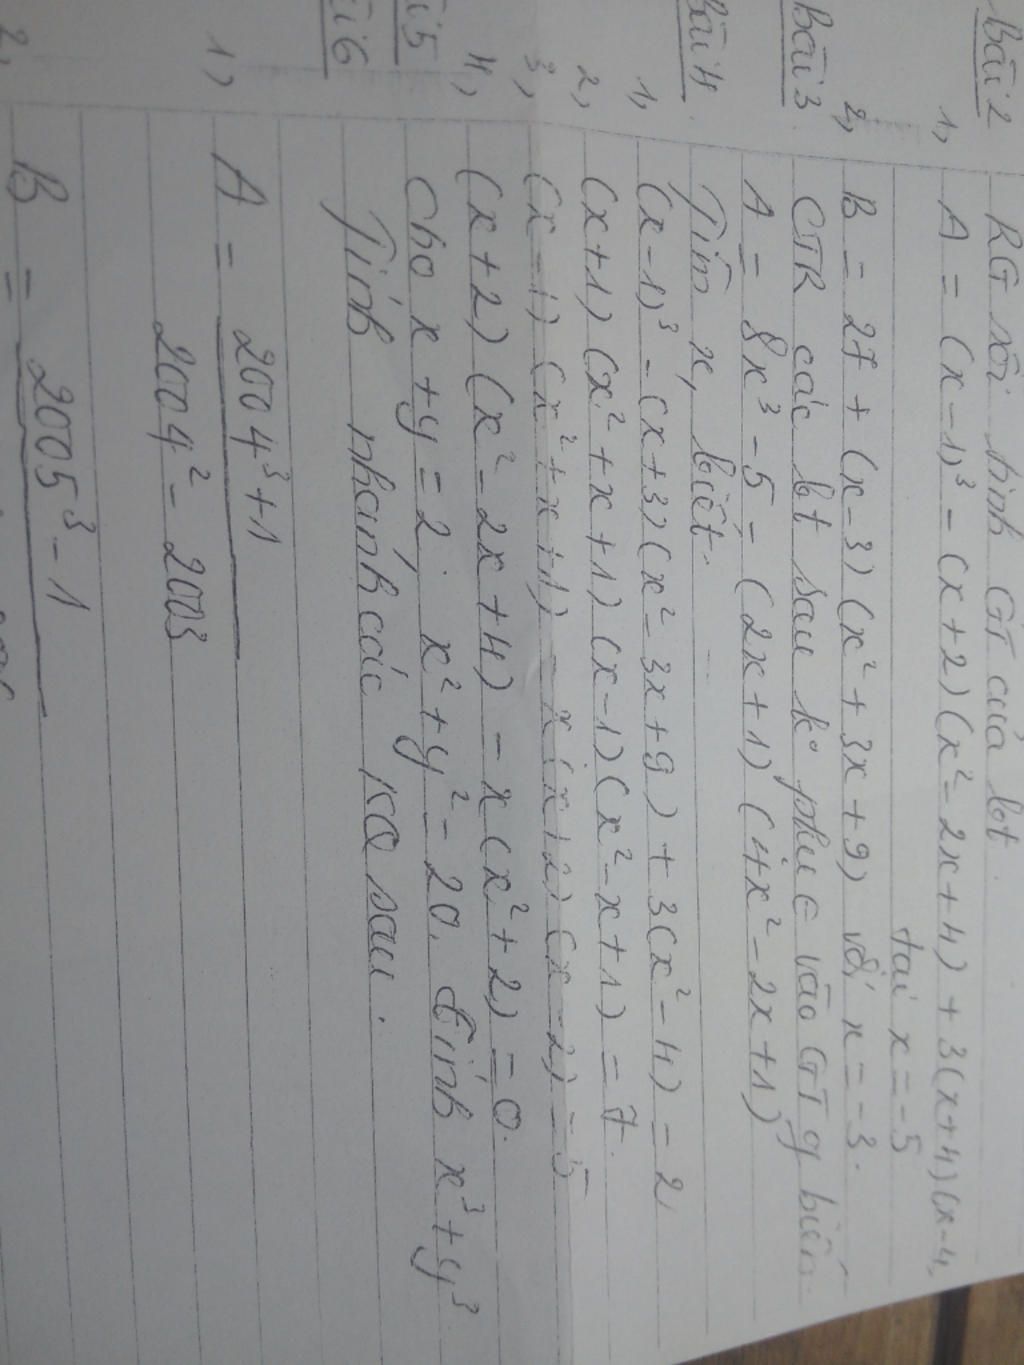 Bài 2 RG rồi tính GT của bt.
1, A = (x-1)³ - (x+2)(x² - 2x+4) + 3(x+4)(x-4)
tại x = -5
2, B = 27 + (x-3)(x² + 3x + 9) với x = -3.
Bài 3. CTR các bt sau ko phụ ∈ vào GT of biến
A = 8x³ - 5 - (2x+1)(4x² - 2x+1)
Bài 4. Tìm x, biết.
1, (x-1)³ - (x+3)(x² - 3x+9) + 3(x² - 4) = 2
2, (x+1)(x² + x+1)(x-1)(x² - x+1) = 7.
3, (x-1)(x² + x+1) - x(x+2)(x-2) = 5
4, (x+2)(x² - 2x+4) - x(x²+2) = 0.
ài 5 Cho x+y = 2. x² + y² = 20. Tính x³ + y³.
ài 6 Tính nhanh các KQ sau.
1, A = 2004³ + 1
2004² - 2003
2, B = 2005³ - 1